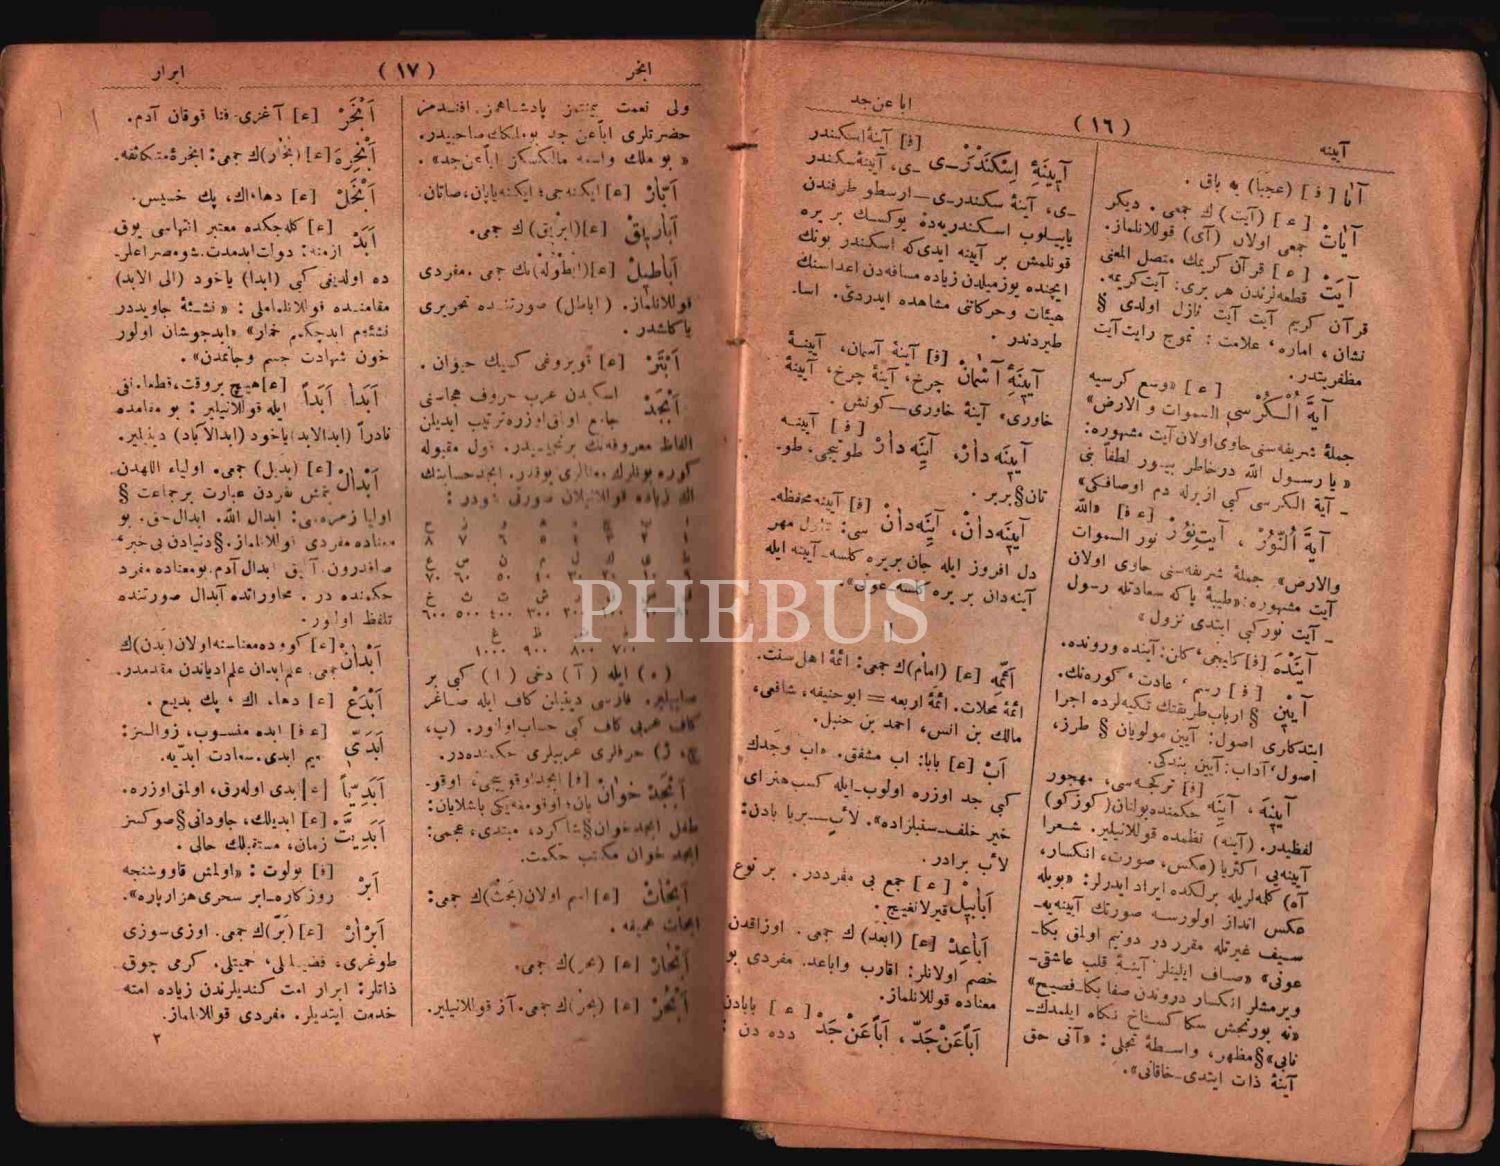 آیینه
( ١٦ )
اباً عن جد
آیا [ فا ] (عجبا) به باق .
آیات [ ع ] (آیت) ك جمعی . دیكر
جمعی اولان (آی) قوللانلماز.
آیت [ ع ] قرآن كریمك متصل المعنی
قطعه لرندن هر بری: آیت كریمه.
قرآن كریم آیت آیت نازل اولدی §
نشان ، اماره ، علامت : تموج رایت آیت
مظفریتدر.
آیة الكرسی [ ع ] «وسع كرسیه
السموات و الارض»
جملهٔ شریفه سنی حاوی اولان آیت مشهوره:
« یا رسول الله درخاطر بیور لطفاً بنی
ـ آیة الكرسی كبی ازبرله دم اوصافكی»
آیة النور ، آیت نور [ ع فا ] «الله
نور السموات
والارض» جملهٔ شریفه سنی حاوی اولان
آیت مشهوره: «طیبهٔ پاكه سعادتله رسول
ـ آیت نور كبی ابتدی نزول»
آینده [فا] كلیجی ، كان: آینده ورونده.
آیین [ فا ] رسم ، عادت ، كوره نك.
§ ارباب طریقتك تكیه لرده اجرا
ایتدكاری اصول: آیین مولویان § طرز،
اصول ، آداب: آیین بندكی.
آیینه ، آینه [فا] تركجه سی، مهجور
حكمنده بولنان (كوزكو)
لفظیدر. (آینه) نظمده قوللانیلیر. شعرا
آیینه یی اكثریا (عكس، صورت، انكسار،
آه) كلمه لریله برلكده ایراد ایدرلر: «بویله
عكس انداز اولورسه صورتك آیینه یه ـ
سیف غیرتله مقرر در دونیم اولمق بكا ـ
عونی» «صاف ایلینلر آینهٔ قلب عاشقی ـ
ویرمشلر انكسار دروندن صفا بكا ـ فصیح»
«نه بورنجش سكا كستاخ نكاه ایلمدك ـ
نابی» § مظهر، واسطهٔ تجلی: «آنی حق
آینهٔ ذات ایتدی ـ خاقانی».
آیینهٔ اسكندر ـ ی [فا] آینهٔ اسكندر
ـ ی، آیینهٔ سكندر
ـ ی، آینهٔ سكندر ـ ی ـ ارسطو طرفندن
یاپیلوب اسكندریه ده یوكسك بر یره
قونلمش بر آیینه ایدی كه اسكندر بونك
ایچنده یوز میلدن زیاده مسافه دن اعداسنك
هیئات وحركاتنی مشاهده ایدردی. اسا ـ
طیردندر .
آیینهٔ آسمان [فا] آینهٔ آسمان، آیینهٔ
چرخ، آینهٔ چرخ، آیینهٔ
خاوری، آینهٔ خاوری ـ كونش .
آیینه دار، آینه دار [ فا ] آیینه
طوتیجی، طو ـ
تان § بربر .
آیینه دان، آینه دان [فا] آیینه محفظه ـ
سی: نازل مهر
دل افروز ایله جان بریره كلسه ـ آیینه ایله
آینه دان بر یره كلسه ـ عونی».
ائمه [ع] (امام) ك جمعی: ائمهٔ اهل سنت.
ائمهٔ محلات. ائمهٔ اربعه = ابوحنیفه، شافعی،
مالك بن انس، احمد بن حنبل.
اب [ع] بابا: اب مشفق. «اب وجدك
كبی جد اوزره اولوب ـ ایله كسب هنر ای
خیر خلف ـ سنبلزاده». لاب ـ بربا بادن:
لاب برادر.
ابابیل [ ع ] جمع بی مفرددر. بر نوع
قیرلانغیج .
اباعد [ع] (ابعد) ك جمعی . اوزاقدن
خصم اولانلر: اقارب واباعد. مفردی بو
معناده قوللانلماز.
اباً عن جد ، اباً عن جد [ ع ] بابادن
دده دن :
ابخر
( ١٧ )
ابرار
ولی نعمت بی منتمز پادشاهمز افندمز
حضرتلری اباً عن جد بو ملكك صاحبیدر.
« بو ملك واسعه مالكسكز اباً عن جد» .
ابار [ع] ایكنه جی؛ ایكنه یاپان، صاتان.
اباریق [ع] (ابریق) ك جمعی.
اباطیل [ع] (ابطوله) نك جمعی. مفردی
قوللانلماز. (اباطل) صورتنده تحریری
یاكلشدر.
ابتر [ع] قویروغی كسیك حیوان .
ابجد اسكیدن عرب حروف هجاسنی
جامع اولمق اوزره ترتیب ایدیلن
الفاظ معروفه نك برنجیسیدر. قول مقبوله
كوره بونلرك معنالری یوقدر. ابجد حسابنك
اك زیاده قوللانیلان صورتی شودر :
ا ب ج د ه و ز ح
١ ٢ ٣ ٤ ٥ ٦ ٧ ٨
ط ی ك ل م ن س ع
٩ ١٠ ٢٠ ٣٠ ٤٠ ٥٠ ٦٠ ٧٠
ف ص ق ر ش ت ث خ
٨٠ ٩٠ ١٠٠ ٢٠٠ ٣٠٠ ٤٠٠ ٥٠٠ ٦٠٠
ذ ض ظ غ
٧٠٠ ٨٠٠ ٩٠٠ ١٠٠٠
(ء) ایله (آ) دخی (ا) كبی بر
صاییلیر. فارسی دینیلن كاف ایله صاغر
كاف عربی كاف كبی حساب اولور. (پ،
چ، ژ) حرفلری عربیلری حكمنده در.
ابجد خوان [فا] ابجد اوقویجی، اوقو ـ
یان؛ اوقومغه یكی باشلایان:
طفل ابجد خوان § شاكرد، مبتدی، عجمی:
ابجد خوان مكتب حكمت.
ابحاث [ع] اسم اولان (بحث) ك جمعی:
ابحاث عمیقه .
ابحار [ع] (بحر) ك جمعی.
ابحر [ع] (بحر) ك جمعی. آز قوللانیلیر.
ابخر [ع] آغزی فنا قوقان آدم.
ابخره [ع] (بخار) ك جمعی: ابخرهٔ متكاثفه.
ابخل [ع] دها، اك، پك خسیس.
ابد [ع] كله جكده معتبر انتهاسی یوق
ازمنه: دولت ابدمدت. شو مصراعلر.
ده اولدیغی كبی (ابدا) یاخود (الی الابد)
مقامنده قوللانلماملی : «نشئهٔ جاویددر
نشئه م ابد چكم خمار» «ابد جوشان اولور
خون شهادت جسم وجانمدن».
ابدا ابداً [ع] هیچ بر وقت، قطعا. نفی
ایله قوللانیلیر: بو مقامده
نادراً (ابد الابد) یاخود (ابد الآباد) دینیلیر.
ابدال [ع] (بدیل) جمعی. اولیاء اللهدن
یتمش نفردن عبارت بر جماعت §
اولیا زمره سی: ابدال الله. ابدال حق. بو
معناده مفردی قوللانلماز. § دنیادن بی خبر،
صافدرون، آبق ابدال آدم. بو معناده مفرد
حكمنده در . محاوراتده آبدال صورتنده
تلفظ اولنور.
ابدان [ع] كوده معناسنه اولان (بدن) ك
جمعی. علم ابدان علم ادیاندن مقدمدر.
ابدع [ع] دها. اك ، پك بدیع .
ابدی [ع فا] ابده منسوب، زوالسز:
نعیم ابدی. سعادت ابدیه.
ابدیاً [ع] ابدی اوله رق، اولمق اوزره.
ابدیت [ع] ابدیلك، جاودانی § صوكسز
زمان، مستقبلك حالی .
ابر [فا] بولوت : «اولمش قاووشنجه
روزكاره ـ ابر سحری هزار پاره».
ابرار [ع] (بر) ك جمعی. اوزی سوزی
طوغری، فضیلتلی، حمیتلی. كرمی چوق
ذاتلر: ابرار امت كندیلرندن زیاده امته
خدمت ایتدیلر. مفردی قوللانلماز.
٢
PHEBUS